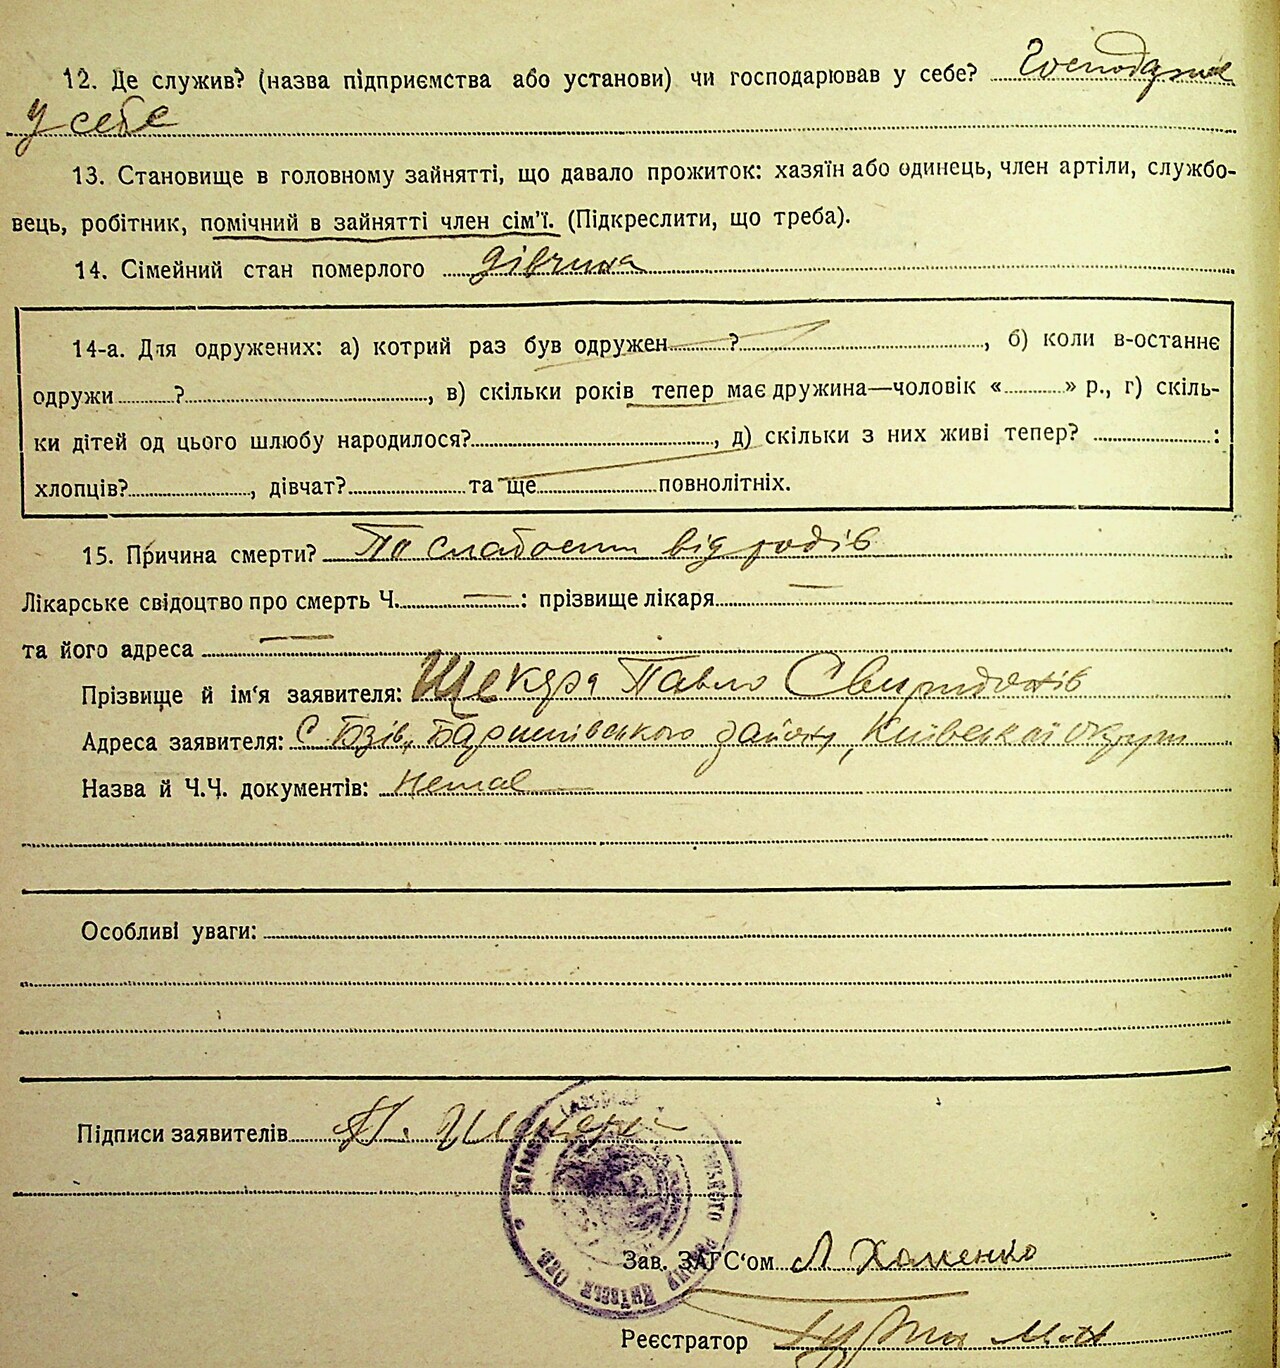 12. Де служив? (назва підприємства або установи) чи господарював у себе? Господарює
у себе
13. Становище в головному зайнятті, що давало прожиток: хазяїн або одинець, член артіли, службо-
вець, робітник, помічний в зайнятті член сім'ї. (Підкреслити, що треба).
14. Сімейний стан померлого дівчина
14-а. Для одружених: а) котрий раз був одружен ?, б) коли в-останнє
одружи ?, в) скільки років тепер має дружина—чоловік « » р., г) скіль-
ки дітей од цього шлюбу народилося?, д) скільки з них живі тепер? :
хлопців?, дівчат? та ще повнолітніх.
15. Причина смерти? По слабости від родів
Лікарське свідоцтво про смерть Ч. — : прізвище лікаря —
та його адреса —
Прізвище й ім'я заявителя: Щекера Павло Свиридонів
Адреса заявителя: С Бзів, Баришівського району, Київської округи
Назва й Ч.Ч. документів: Немає
Особливі уваги:
Підписи заявителів П.
Зав. ЗАГС'ом Л Хоменко
Реєстратор